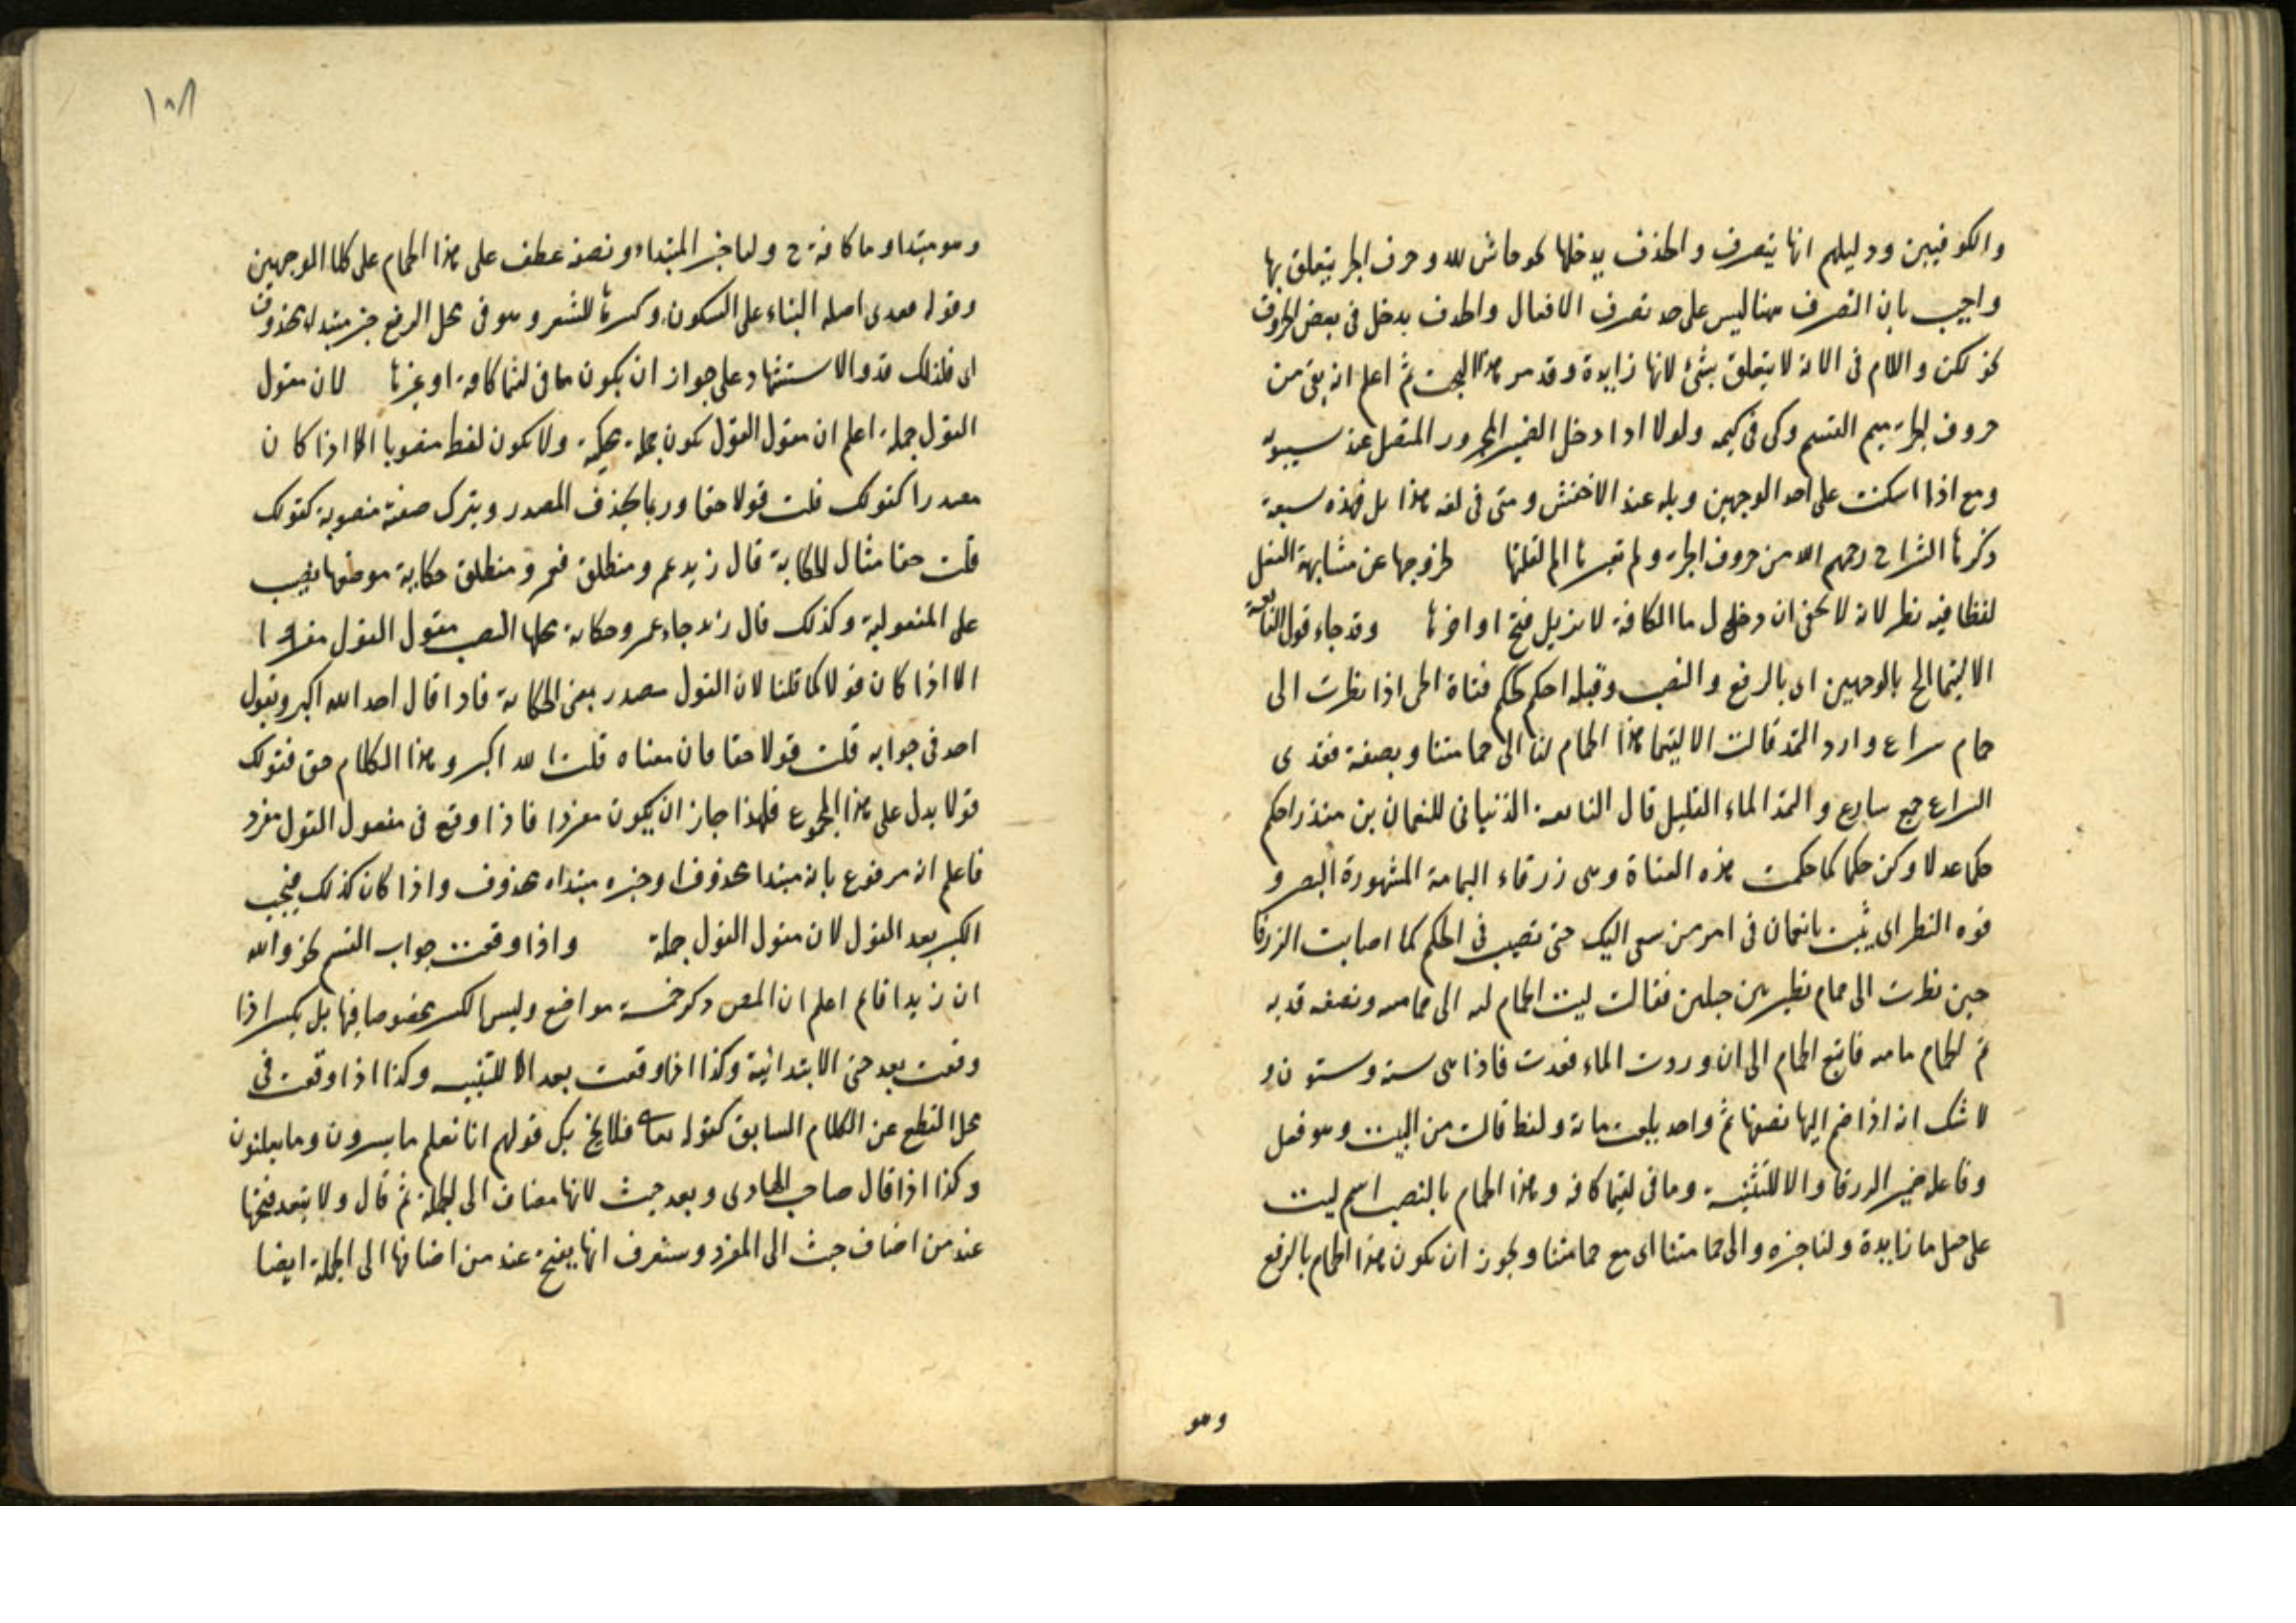 والكوفيين ودليلهم انها يتصرف والحذف يدخلها نحو حاش لله وحرف الجر يتعلق بها
واجيب بان التصرف هنا ليس على حد تصرف الافعال والحذف يدخل في بعض الحروف
نحو لكن واللام في الاية لا يتعلق بشئ لانها زايدة وقد مر هذا البحث ثم اعلم انه بقى من
حروف الجارة ميم القسم وكى في كيمه ولولا اذا دخل الضمير المجرور المتصل عند سيبويه
ومع اذا اسكنت على احد الوجهين وبله عند الاخفش ومتى في لغة هذيل فهذه سبعة
ذكرها الشراح رحمهم الله من حروف الجارة ولم تعبرها لقلتها لخروجها عن مشابهة الفعل
لفظا فيه نظر لانه لا يخفى ان دخول ما الكافة لا يزيل فتح اواخرها وقد جاء قول النابغة
الا ليتما الخ بالوجهين اى بالرفع والنصب وقبله احكم كحكم فتاة الحى اذا نظرت الى
حمام سراع وارد الثمد قالت الا ليتما هذا الحمام لنا الى حمامتنا ونصفه فقدى
السراع جمع سارع والثمد الماء القليل قال النابغة الذبيانى للنعمان بن منذر احكم
حكما عدلا وكن حكما كما حكمت هذه الفتاة وهى زرقاء اليمامة المشهورة البصر و
قوة النظر اى يثبت يا نعمان في امر من سعى اليك حتى تصيب في الحكم كما اصابت الزرقا
حين نظرت الى حمام نظير بين جبلين فقالت ليت الحمام ليه الى حمامتيه ونصفه قديه
تم الحمام مايه فاتبع الحمام الى ان وردت الماء فعدت فاذا هى ستة وستون و
لا شك انه اذا ضم اليها نصفها ثم واحد بلغت مائة ولفظ قالت من البيت وهو فعل
وفاعله ضمير الزرقا والا للتنبيه وما في ليتما كافة وهذا الحمام بالنصب اسم ليت
على جعل ما زايدة ولنا خبره والى حمامتنا اى مع حمامتنا ويجوز ان يكون هذا الحمام بالرفع
وهو
١٠٨
وهو مبتدا وما كافة ح ولنا خبر المبتداء ونصفه عطف على هذا الحمام على كلا الوجهين
وقوله فقدى اصله البناء على السكون وكسرها للشعر وهو في محل الرفع خبر مبتداء محذوف
اى فذلك قد والاستشهاد على جواز ان يكون ما في ليتما كافة او غيرها لان مقول
القول جملة اعلم ان مقول القول يكون جملة محكية ولا يكون لفظ منصوبا الا اذا كان
مصدرا كقولك قلت قولا حقا وربما يحذف المصدر ويترك صفته منصوبة كقولك
قلت حقا مثال الحكاية قال زيد عمرو منطلق فعمرو منطلق حكاية موضعها نصب
على المفعولية وكذلك قال زيد جاء عمرو حكاية محلها النصب مقول القول مفردا
الا اذا كان قولا كما قلنا لان القول مصدر بمعنى الحكاية فاذا قال احد الله اكبر ويقول
احد في جوابه قلت قولا حقا فان معناه قلت الله اكبر وهذا الكلام حق فقولك
قولا يدل على هذا المجموع فلهذا جاز ان يكون مفردا فاذا وقع في مفعول القول مفرد
فاعلم انه مرفوع بانه مبتدا محذوف وخبره مبتداه محذوف واذا كان كذلك فيجب
الكسر بعد القول لان مقول القول جملة واذا وقعت جواب القسم نحو والله
ان زيدا قائم اعلم ان المص ذكر خمسة مواضع وليس الكسر مخصوصا فيها بل يكسر اذا
وقعت بعد حتى الابتدائية وكذا اذا وقعت بعد الا للتنبيه وكذا اذا وقعت في
محل القطع عن الكلام السابق كقوله تعالى فلا يحزنك قولهم انا نعلم ما يسرون وما يعلنون
وكذا اذا قال صاحب الهادى وبعد حيث لانها مضاف الى الجملة ثم قال ولا يتعد فتحها
عند من اضاف حيث الى المفرد وستعرف انها يفتح عند من اضافها الى الجملة ايضا